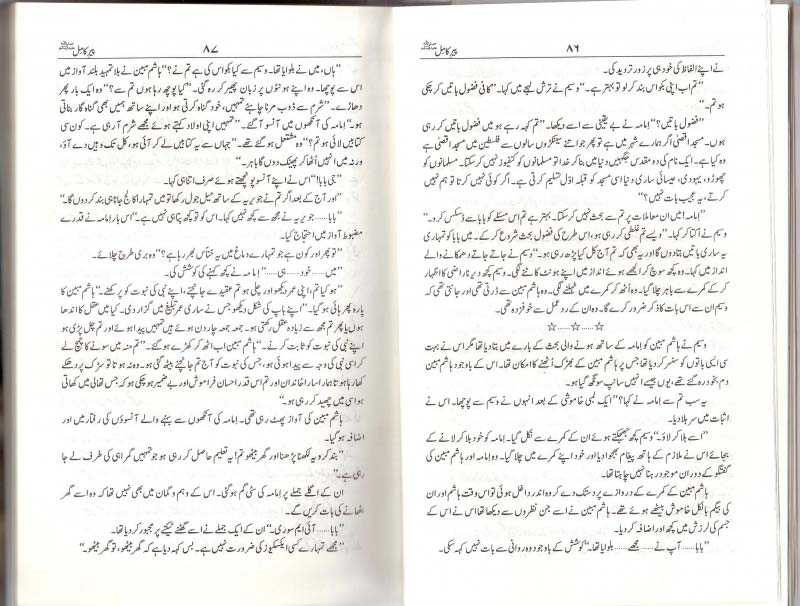 ۸۶
پیر کامل
نے اپنے الفاظ کی خود ہی پر زور تردید کی۔
"تم اب اپنی بکواس بند کر لو تو بہتر ہے۔" وسیم نے ترش لہجے میں کہا۔ "کافی فضول باتیں کر چکی
ہو تم۔"
"فضول باتیں؟" امامہ نے بے یقینی سے اسے دیکھا۔ "تم کہہ رہے ہو میں فضول باتیں کر رہی
ہوں۔ مسجد اقصیٰ ہمارے شہر میں ہے تو پھر جو اتنے سینکڑوں سالوں سے فلسطین میں مسجد اقصیٰ ہے
وہ کیا ہے۔ ایک نام کی دو مقدس جگہیں دنیا میں بنا کر خدا تو مسلمانوں کو کنفیوز نہیں کر سکتا۔ مسلمانوں کو
چھوڑو، یہودی، عیسائی ساری دنیا اسی مسجد کو قبلہ اول تسلیم کرتی ہے۔ اگر کوئی نہیں کرتا تو ہم نہیں
کرتے، یہ عجیب بات نہیں؟"
"امامہ! میں ان معاملات پر تم سے بحث نہیں کر سکتا۔ بہتر ہے تم اس مسئلے کو بابا سے ڈسکس کرو۔"
وسیم نے اکتا کر کہا۔ "ویسے تم غلطی کر رہی ہو، اس طرح کی فضول بحث شروع کر کے۔ میں بابا کو تمہاری
یہ ساری باتیں بتا دوں گا اور یہ بھی کہ تم آج کل کیا پڑھ رہی ہو۔" وسیم نے جاتے جاتے دھمکانے والے
انداز میں کہا۔ وہ کچھ سوچ کر الجھے ہوئے انداز میں اپنے ہونٹ کاٹنے لگی۔ وسیم کچھ دیر ناراضی کا اظہار
کر کے کمرے سے باہر چلا گیا۔ وہ اٹھ کر کمرے میں ٹہلنے لگی۔ وہ ہاشم مبین سے ڈرتی تھی اور جانتی تھی کہ
وسیم ان سے اس بات کا ذکر ضرور کرے گا۔ وہ ان کے رد عمل سے خوفزدہ تھی۔
☆.....☆.....☆
وسیم نے ہاشم مبین کو امامہ کے ساتھ ہونے والی بحث کے بارے میں بتا دیا تھا مگر اس نے بہت
سی ایسی باتوں کو سنسر کر دیا تھا جس پر ہاشم مبین کے بھڑک اٹھنے کا امکان تھا۔ اس کے باوجود ہاشم مبین
دم بخود رہ گئے تھے، یوں جیسے انہیں سانپ سونگھ گیا ہو۔
"یہ سب تم سے امامہ نے کہا؟" ایک لمبی خاموشی کے بعد انہوں نے وسیم سے پوچھا۔ اس نے
اثبات میں سر ہلا دیا۔
"اسے بلا کر لاؤ۔" وسیم کچھ جھجکتے ہوئے ان کے کمرے سے نکل گیا۔ امامہ کو خود بلا کر لانے کے
بجائے اس نے ملازم کے ہاتھ پیغام بھجوا دیا اور خود اپنے کمرے میں چلا گیا۔ وہ امامہ اور ہاشم مبین کی
گفتگو کے دوران موجود رہنا نہیں چاہتا تھا۔
ہاشم مبین کے کمرے کے دروازے پر دستک دے کر وہ اندر داخل ہوئی تو اس وقت ہاشم اور ان
کی بیگم بالکل خاموش بیٹھے ہوئے تھے۔ ہاشم مبین نے اسے جن نظروں سے دیکھا تھا اس نے اس کے
جسم کی لرزش میں کچھ اور اضافہ کر دیا۔
"بابا..... آپ نے..... مجھے..... بلوایا تھا۔" کوشش کے باوجود وہ روانی سے بات نہیں کہہ سکی۔
۸۷
پیر کامل
"ہاں، میں نے بلوایا تھا۔ وسیم سے کیا بکواس کی ہے تم نے؟" ہاشم مبین نے بلا تمہید بلند آواز میں
اس سے پوچھا۔ وہ اپنے ہونٹوں پر زبان پھیر کر رہ گئی۔ "کیا پوچھ رہا ہوں تم سے؟" وہ ایک بار پھر
دھاڑے۔ "شرم سے ڈوب مرنا چاہئے تمہیں، خود گناہ کرتی ہو اور اپنے ساتھ ہمیں بھی گناہ گار بناتی
ہو۔" امامہ کی آنکھوں میں آنسو آ گئے۔ "تمہیں اپنی اولاد کہتے ہوئے مجھے شرم آ رہی ہے۔ کون سی
کتابیں لائی ہو تم؟" وہ مشتعل ہو گئے تھے۔ "جہاں سے یہ کتابیں لے کر آئی ہو، کل تک وہیں دے آؤ،
ورنہ میں انہیں اٹھا کر پھینک دوں گا باہر۔"
"جی بابا!" اس نے اپنے آنسو پونچھتے ہوئے صرف اتنا ہی کہا۔
"اور آج کے بعد اگر تم نے جویریہ کے ساتھ میل جول رکھا تو میں تمہارا کالج جانا ہی بند کر دوں گا۔"
"بابا..... جویریہ نے مجھ سے کچھ نہیں کہا۔ اس کو تو کچھ پتا ہی نہیں ہے۔" اس بار امامہ نے قدرے
مضبوط آواز میں احتجاج کیا۔
"تو پھر اور کون ہے جو تمہارے دماغ میں یہ خناس بھر رہا ہے؟" وہ بری طرح چلائے۔
"میں..... خود..... ہی....." امامہ نے کچھ کہنے کی کوشش کی۔
"ہو کیا تم، اپنی عمر دیکھو اور چلی ہو تم عقیدے جانچنے، اپنے نبی کی نبوت کو پرکھنے۔" ہاشم مبین کا
پارہ پھر ہائی ہو گیا۔ "اپنے باپ کی شکل دیکھو جس نے ساری عمر تبلیغ میں گزار دی۔ کیا میں عقل کا اندھا
ہوں یا پھر تم مجھ سے زیادہ عقل رکھتی ہو۔ جمعہ جمعہ چار دن ہوئے ہیں تمہیں پیدا ہوئے اور تم چل پڑی ہو
اپنے نبی کی نبوت کو ثابت کرنے۔" ہاشم مبین اب اٹھ کر کھڑے ہو گئے۔ "تم منہ میں سونے کا چمچ لے
کر اسی نبی کی وجہ سے پیدا ہوئی ہو، جس کی نبوت کو آج تم جانچنے بیٹھ گئی ہو۔ وہ نہ ہوتا تو سڑک پر دھکے
کھا رہا ہوتا ہمارا سارا خاندان اور تم اس قدر احسان فراموش اور بے ضمیر ہو چکی ہو کہ جس تھالی میں کھاتی
ہو اسی میں چھید کر رہی ہو۔"
ہاشم مبین کی آواز پھٹ رہی تھی۔ امامہ کی آنکھوں سے بہنے والے آنسوؤں کی رفتار میں اور
اضافہ ہو گیا۔
"بند کر دو یہ لکھنا پڑھنا اور گھر بیٹھو تم! یہ تعلیم حاصل کر رہی ہو جو تمہیں گمراہی کی طرف لے جا
رہی ہے۔"
ان کے اگلے جملے پر امامہ کی سٹی گم ہو گئی۔ اس کے وہم و گمان میں بھی نہیں تھا کہ وہ اسے گھر
بٹھانے کی بات کریں گے۔
"بابا..... آئی ایم سوری۔" ان کے ایک جملے نے اسے گھٹنے ٹیکنے پر مجبور کر دیا تھا۔
"مجھے تمہارے کسی ایکسکیوز کی ضرورت نہیں ہے۔ بس کہہ دیا ہے کہ گھر بیٹھو، تو گھر بیٹھو۔"